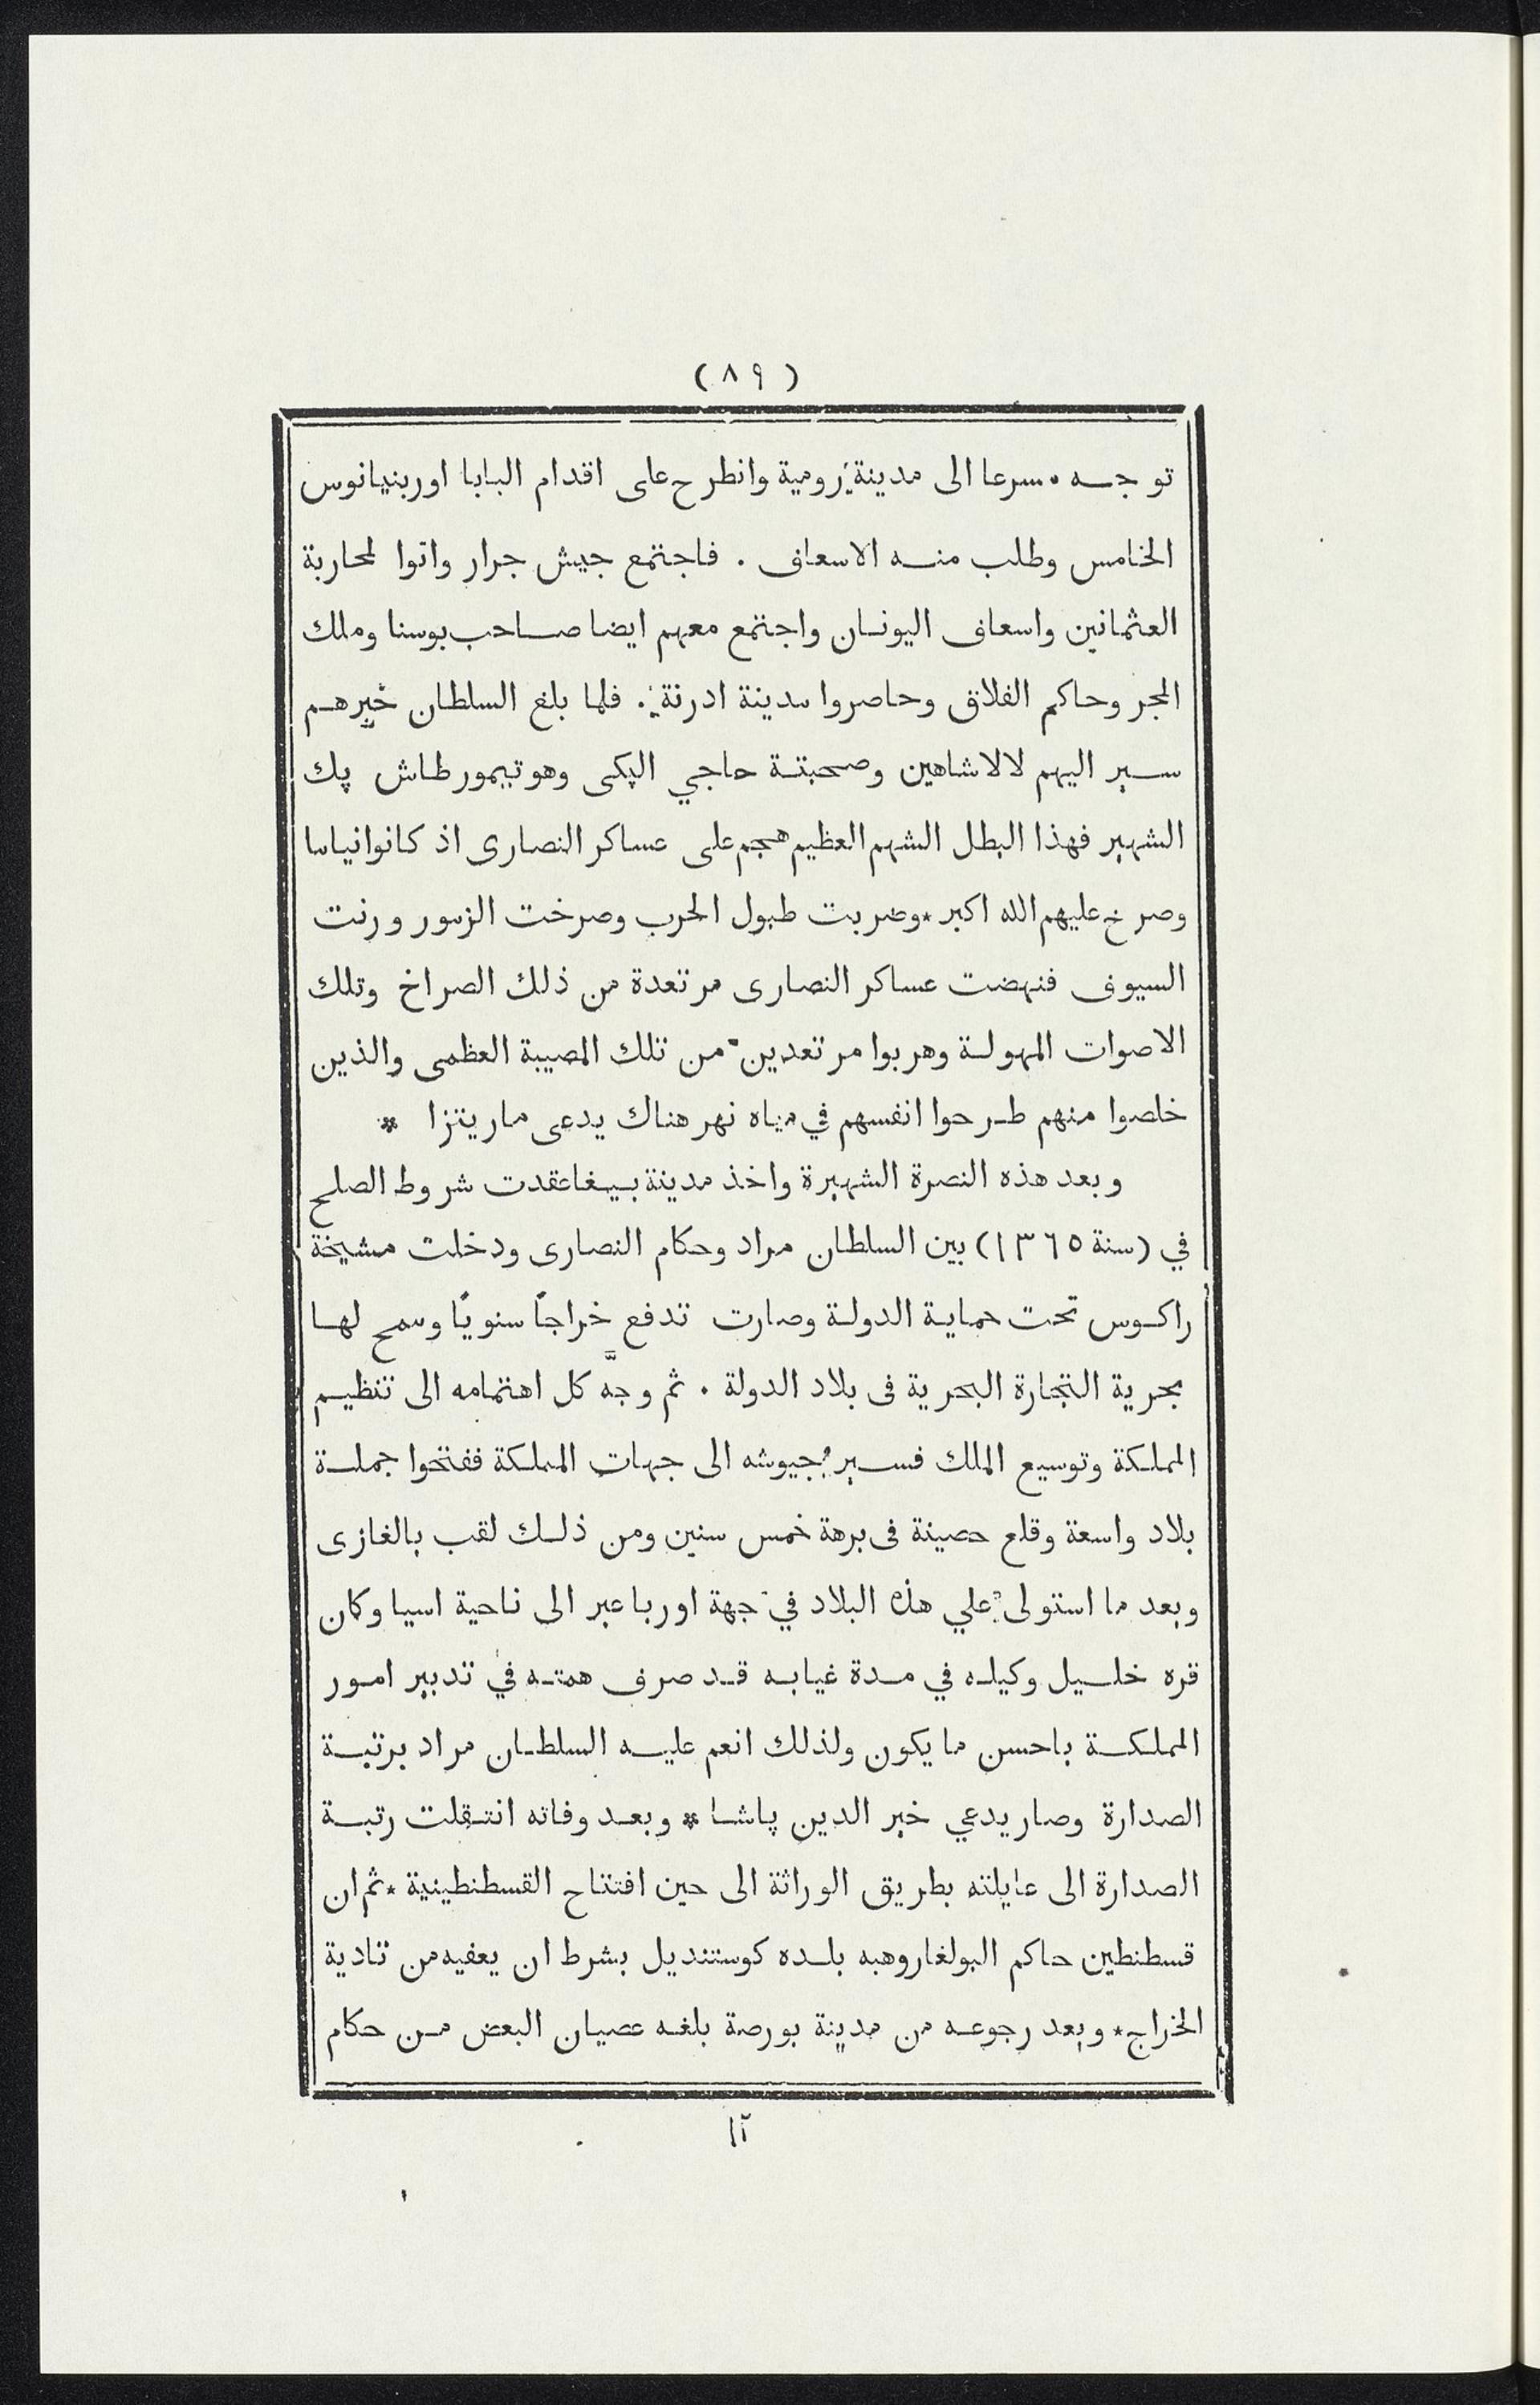 (٨٩)
توجه مسرعا الى مدينة رومية وانطرح على اقدام البابا اوربنيانوس
الخامس وطلب منه الاسعاف . فاجتمع جيش جرار واتوا لمحاربة
العثمانين واسعاف اليونان واجتمع معهم ايضا صاحب بوسنا وملك
المجر وحاكم الفلاق وحاصروا مدينة ادرنة . فلما بلغ السلطان خبرهم
سير اليهم لالاشاهين وصحبتة حاجي الپكى وهو تيمورطاش پك
الشهير فهذا البطل الشهم العظيم هجم على عساكر النصارى اذ كانوا نياما
وصرخ عليهم الله اكبر * وضربت طبول الحرب وصرخت الزمور ورنت
السيوف فنهضت عساكر النصارى مرتعدة من ذلك الصراخ وتلك
الاصوات المهولة وهربوا مرتعدين من تلك المصيبة العظمى والذين
خلصوا منهم طرحوا انفسهم في مياه نهر هناك يدعى ماريتزا *
وبعد هذه النصرة الشهيرة واخذ مدينة بيغا عقدت شروط الصلح
في (سنة ١٣٦٥) بين السلطان مراد وحكام النصارى ودخلت مشيخة
راكوس تحت حماية الدولة وصارت تدفع خراجاً سنوياً وسمح لها
بحرية التجارة البحرية فى بلاد الدولة . ثم وجّه كل اهتمامه الى تنظيم
المملكة وتوسيع الملك فسير جيوشه الى جهات المملكة ففتحوا جملة
بلاد واسعة وقلع حصينة فى برهة خمس سنين ومن ذلك لقب بالغازى
وبعد ما استولى علي هذه البلاد في جهة اوربا عبر الى ناحية اسيا وكان
قره خليل وكيله في مدة غيابه قد صرف همته في تدبير امور
المملكة باحسن ما يكون ولذلك انعم عليه السلطان مراد برتبة
الصدارة وصار يدعي خير الدين پاشا * وبعد وفاته انتقلت رتبة
الصدارة الى عايلته بطريق الوراثة الى حين افتتاح القسطنطينية * ثم ان
قسطنطين حاكم البولغار وهبه بلده كوستنديل بشرط ان يعفيه من تادية
الخراج * وبعد رجوعه من مدينة بورصة بلغه عصيان البعض من حكام